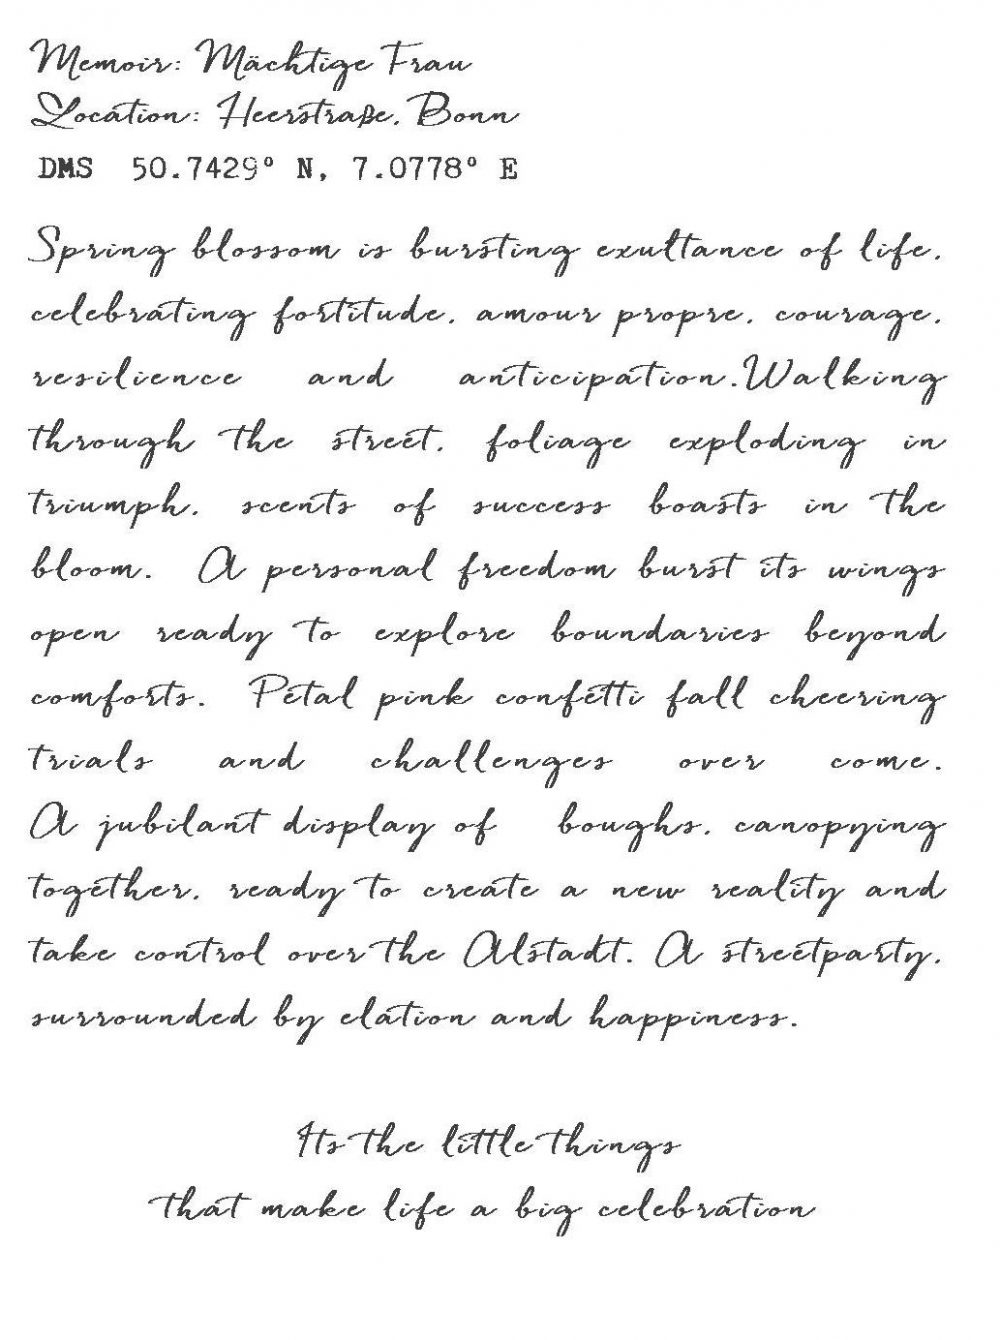 Memoir: Mächtige Frau
Location: Heerstraße, Bonn
DMS 50.7429° N, 7.0778° E
Spring blossom is bursting exultance of life,
celebrating fortitude, amour propre, courage,
resilience and anticipation.Walking
through the street, foliage exploding in
triumph, scents of success boasts in the
bloom. A personal freedom burst its wings
open ready to explore boundaries beyond
comforts. Petal pink confetti fall cheering
trials and challenges over come.
A jubilant display of boughs, canopying
together, ready to create a new reality and
take control over the Alstadt. A streetparty,
surrounded by elation and happiness.
Its the little things
that make life a big celebration